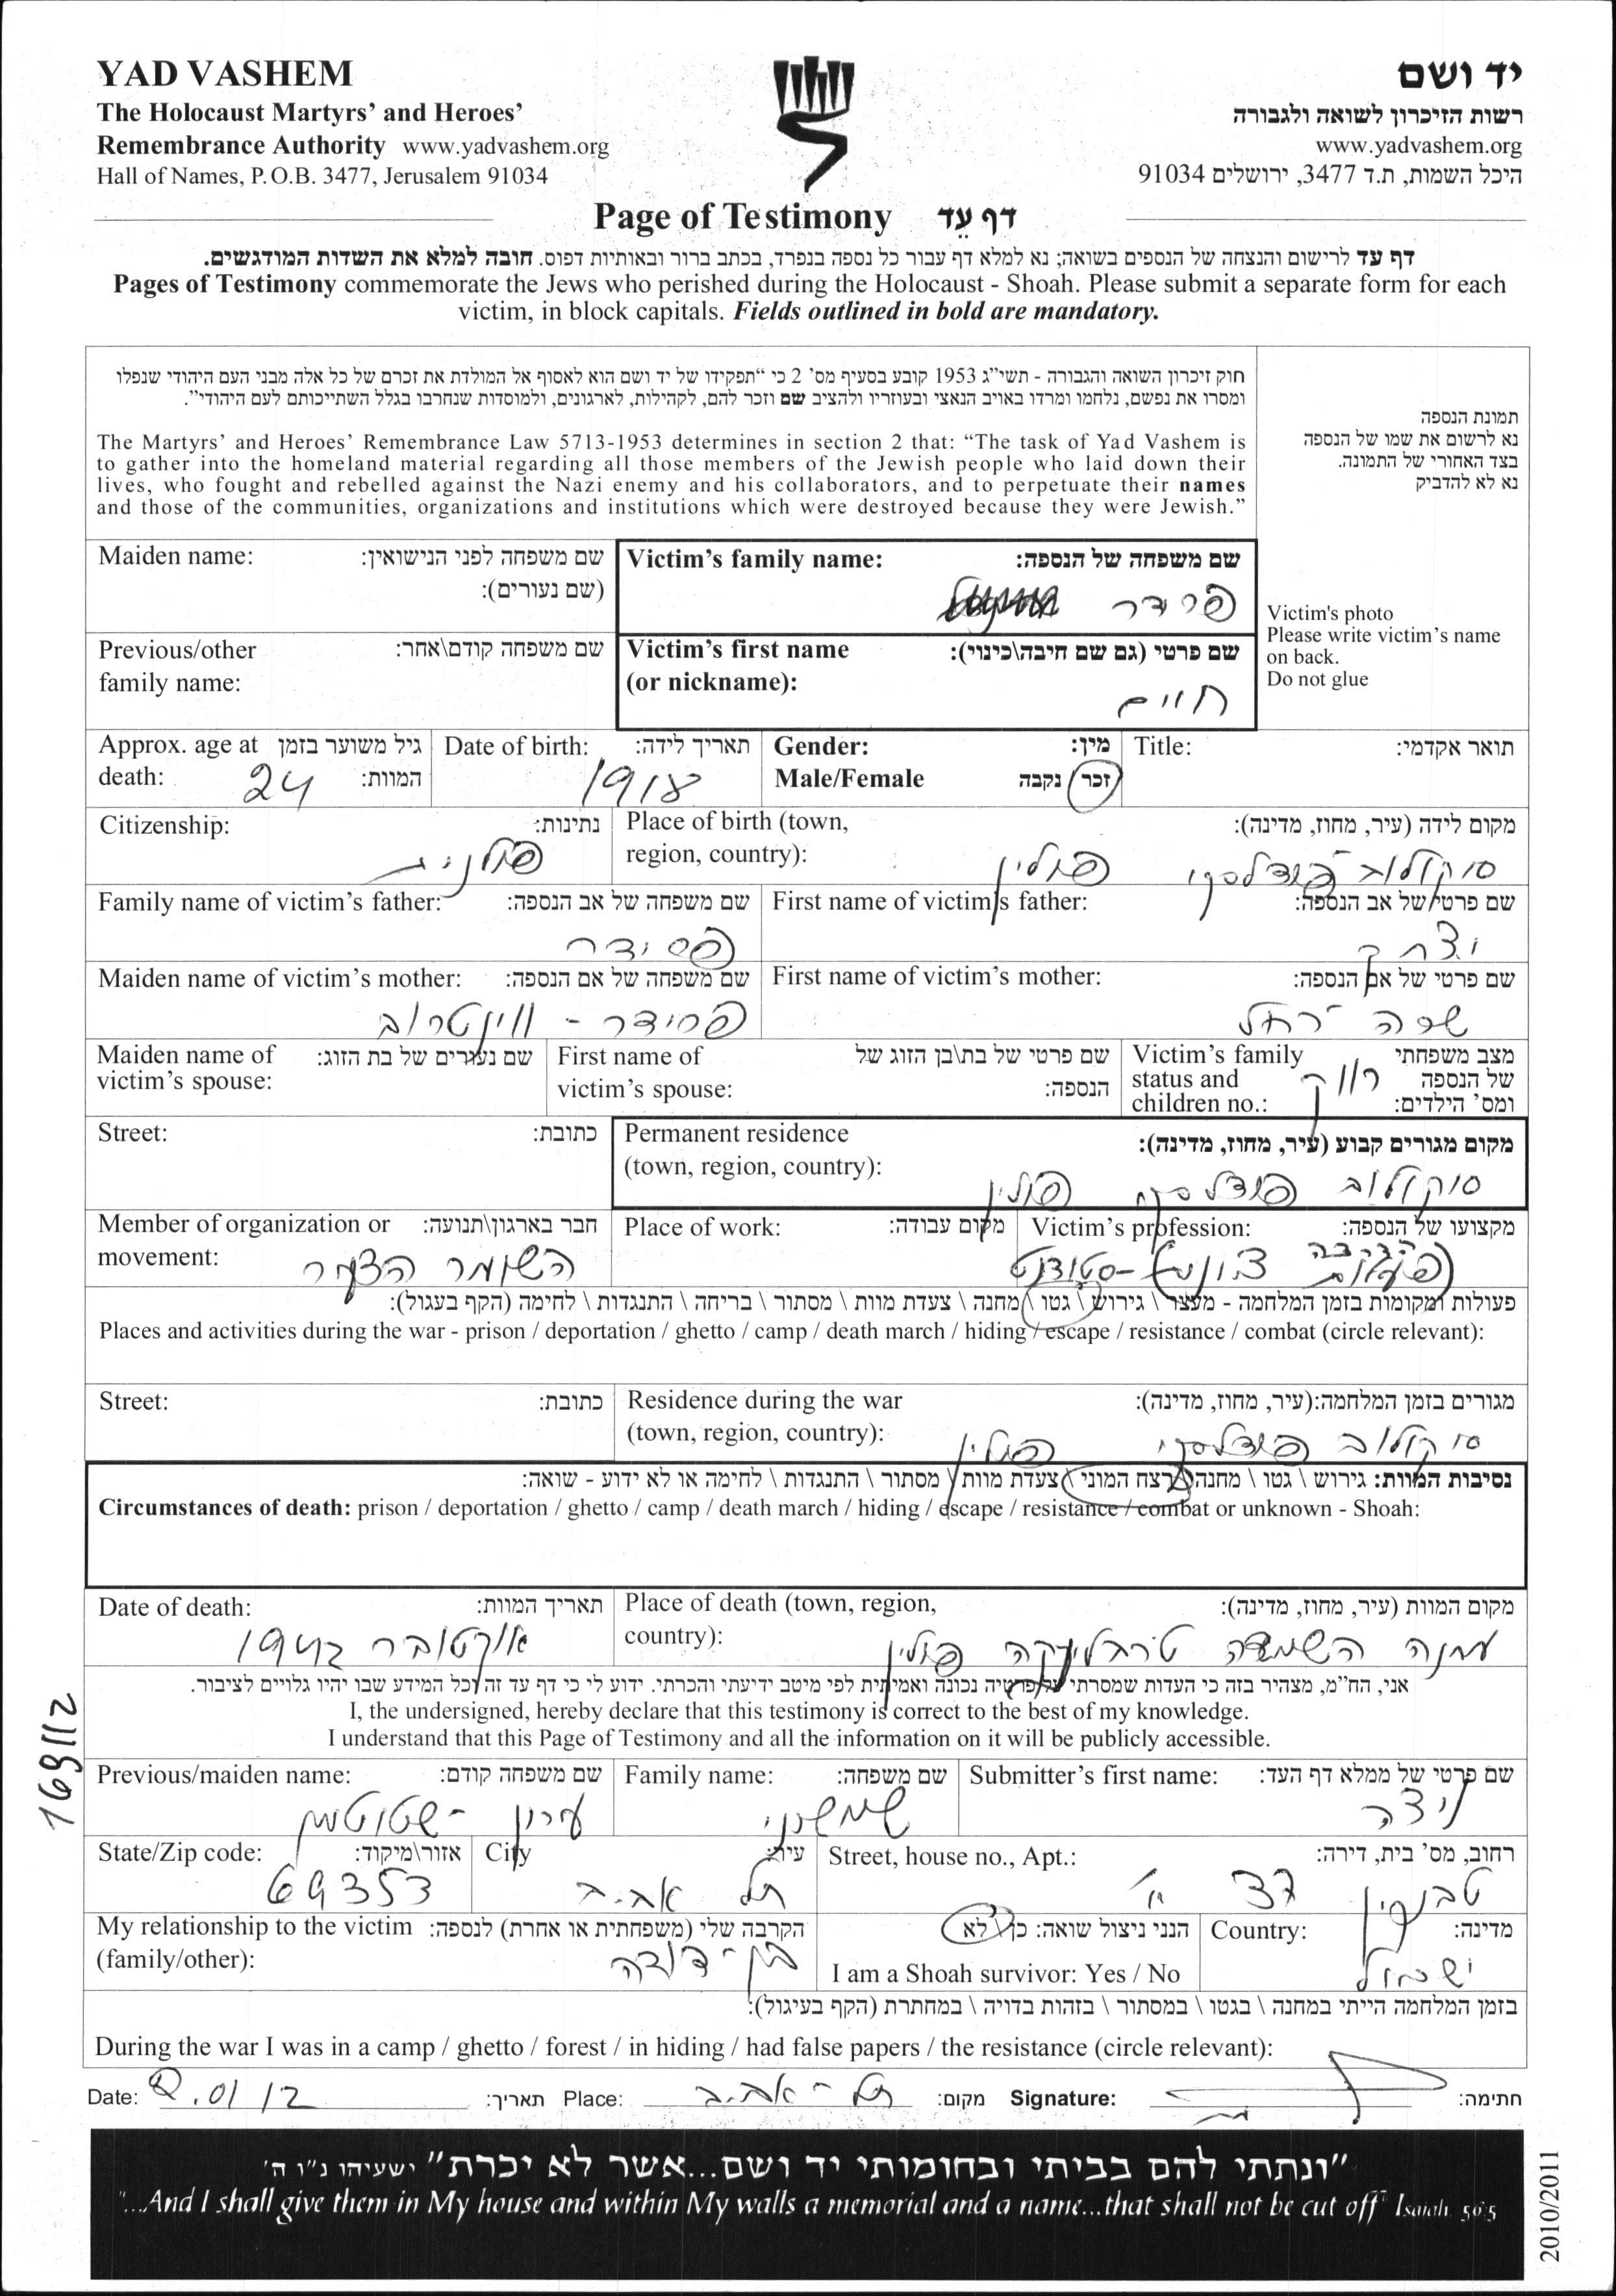 YAD VASHEM
יד ושם
The Holocaust Martyrs’ and Heroes’
רשות הזיכרון לשואה ולגבורה
Remembrance Authority www.yadvashem.org
www.yadvashem.org
Hall of Names, P.O.B. 3477, Jerusalem 91034
היכל השמות, ת.ד 3477, ירושלים 91034
Page of Testimony דף עֵד
דף עד לרישום והנצחה של הנספים בשואה; נא למלא דף עבור כל נספה בנפרד, בכתב ברור ובאותיות דפוס. חובה למלא את השדות המודגשים.
Pages of Testimony commemorate the Jews who perished during the Holocaust - Shoah. Please submit a separate form for each
victim, in block capitals. Fields outlined in bold are mandatory.
חוק זיכרון השואה והגבורה - תשי״ג 1953 קובע בסעיף מס׳ 2 כי ״תפקידו של יד ושם הוא לאסוף אל המולדת את זכרם של כל אלה מבני העם היהודי שנפלו
ומסרו את נפשם, נלחמו ומרדו באויב הנאצי ובעוזריו ולהציב שם וזכר להם, לקהילות, לארגונים, ולמוסדות שנחרבו בגלל השתייכותם לעם היהודי״.
The Martyrs’ and Heroes’ Remembrance Law 5713-1953 determines in section 2 that: “The task of Yad Vashem is
to gather into the homeland material regarding all those members of the Jewish people who laid down their
lives, who fought and rebelled against the Nazi enemy and his collaborators, and to perpetuate their names
and those of the communities, organizations and institutions which were destroyed because they were Jewish.”
תמונת הנספה
נא לרשום את שמו של הנספה
בצד האחורי של התמונה.
נא לא להדביק
Victim's photo
Please write victim’s name
on back.
Do not glue
Maiden name: שם משפחה לפני הנישואין:
(שם נעורים):
Victim’s family name: שם משפחה של הנספה:
פרידר
Previous/other שם משפחה קודם\אחר:
family name:
Victim’s first name שם פרטי (גם שם חיבה\כינוי):
(or nickname):
חיים
Approx. age at גיל משוער בזמן
death: 24 המוות:
Date of birth: תאריך לידה:
1918
Gender: מין:
Male/Female זכר נקבה
Title: תואר אקדמי:
Citizenship: נתינות:
פולנית
Place of birth (town, מקום לידה (עיר, מחוז, מדינה):
region, country):
סוקולוב פודלסקי פולין
Family name of victim’s father: שם משפחה של אב הנספה:
פרידר
First name of victim’s father: שם פרטי של אב הנספה:
יצחק
Maiden name of victim’s mother: שם משפחה של אם הנספה:
פרידר - ווינטרוב
First name of victim’s mother: שם פרטי של אם הנספה:
שרה רחל
Maiden name of שם נעורים של בת הזוג:
victim’s spouse:
First name of שם פרטי של בת\בן הזוג של
victim’s spouse: הנספה:
Victim’s family מצב משפחתי
status and של הנספה
children no.: ומס׳ הילדים:
רווק
Street: כתובת:
Permanent residence מקום מגורים קבוע (עיר, מחוז, מדינה):
(town, region, country):
סוקולוב פודלסקי פולין
Member of organization or חבר בארגון\תנועה:
movement: השומר הצעיר
Place of work: מקום עבודה:
Victim’s profession: מקצועו של הנספה:
סטודנט
פעולות ומקומות בזמן המלחמה - מעצר \ גירוש \ גטו \ מחנה \ צעדת מוות \ מסתור \ בריחה \ התנגדות \ לחימה (הקף בעגול):
Places and activities during the war - prison / deportation / ghetto / camp / death march / hiding / escape / resistance / combat (circle relevant):
Street: כתובת:
Residence during the war מגורים בזמן המלחמה:(עיר, מחוז, מדינה):
(town, region, country):
סוקולוב פודלסקי פולין
נסיבות המוות: גירוש \ גטו \ מחנה \ רצח המוני \ צעדת מוות \ מסתור \ התנגדות \ לחימה או לא ידוע - שואה:
Circumstances of death: prison / deportation / ghetto / camp / death march / hiding / escape / resistance / combat or unknown - Shoah:
Date of death: תאריך המוות:
אוקטובר 1942
Place of death (town, region, מקום המוות (עיר, מחוז, מדינה):
country):
מחנה השמדה טרבלינקה פולין
אני, הח״מ, מצהיר בזה כי העדות שמסרתי על פרטיה נכונה ואמיתית לפי מיטב ידיעתי והכרתי. ידוע לי כי דף עד זה וכל המידע שבו יהיו גלויים לציבור.
I, the undersigned, hereby declare that this testimony is correct to the best of my knowledge.
I understand that this Page of Testimony and all the information on it will be publicly accessible.
Previous/maiden name: שם משפחה קודם:
Family name: שם משפחה:
שמשוני
Submitter’s first name: שם פרטי של ממלא דף העד:
ניצה
State/Zip code: אזור\מיקוד:
69353
City עיר:
תל אביב
Street, house no., Apt.: רחוב, מס׳ בית, דירה:
טבנקין 37
My relationship to the victim הקרבה שלי (משפחתית או אחרת) לנספה:
(family/other): בת-דודה
הנני ניצול שואה: כן \ לא
I am a Shoah survivor: Yes / No
Country: מדינה:
ישראל
בזמן המלחמה הייתי במחנה \ בגטו \ במסתור \ בזהות בדויה \ במחתרת (הקף בעיגול):
During the war I was in a camp / ghetto / forest / in hiding / had false papers / the resistance (circle relevant):
Date: 2.01 12 תאריך: Place: תל - אביב מקום: Signature: חתימה:
״ונתתי להם בביתי ובחומותי יד ושם...אשר לא יכרת״ ישעיהו נ״ו ה׳
"...And I shall give them in My house and within My walls a memorial and a name...that shall not be cut off" Isaiah 56:5
169112
2010/2011